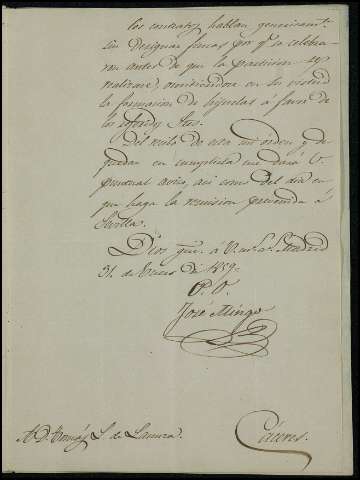 los contratos hablan generiamte.
sin designar fincas por qe. se celebra-
ran antes de que la particion se
realizase, omitiendose en su virtud
la formacion de hijuelas á favor de
los
Del recibo de esta mi orden y de
quedar en cumplirla me dará V.
puntual aviso, asi como del dia en
que haga la remision prevenida á
Sevilla.
Dios gue. á V. ms. as. Madrid
31. de Enero de 1859.
P. P.
José Mingo
A D. Tomás L. de Lamora.
Cáceres.